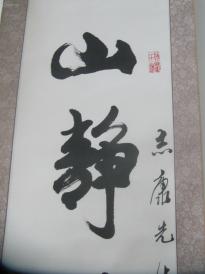 山静
志康先